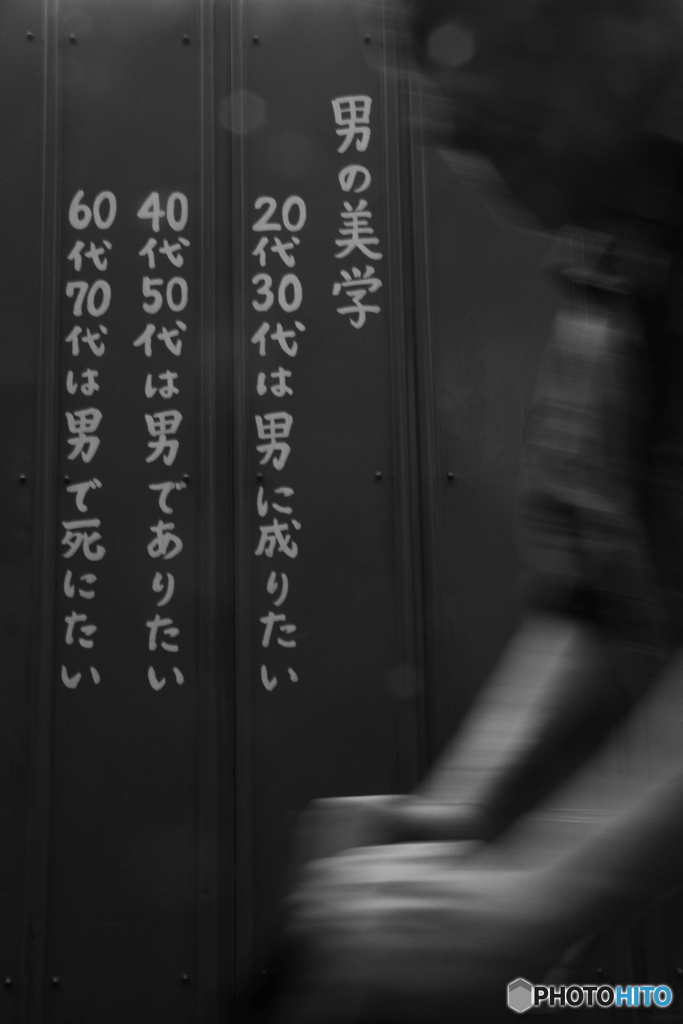 男の美学
20代30代は男に成りたい
40代50代は男でありたい
60代70代は男で死にたい
PHOTOHITO